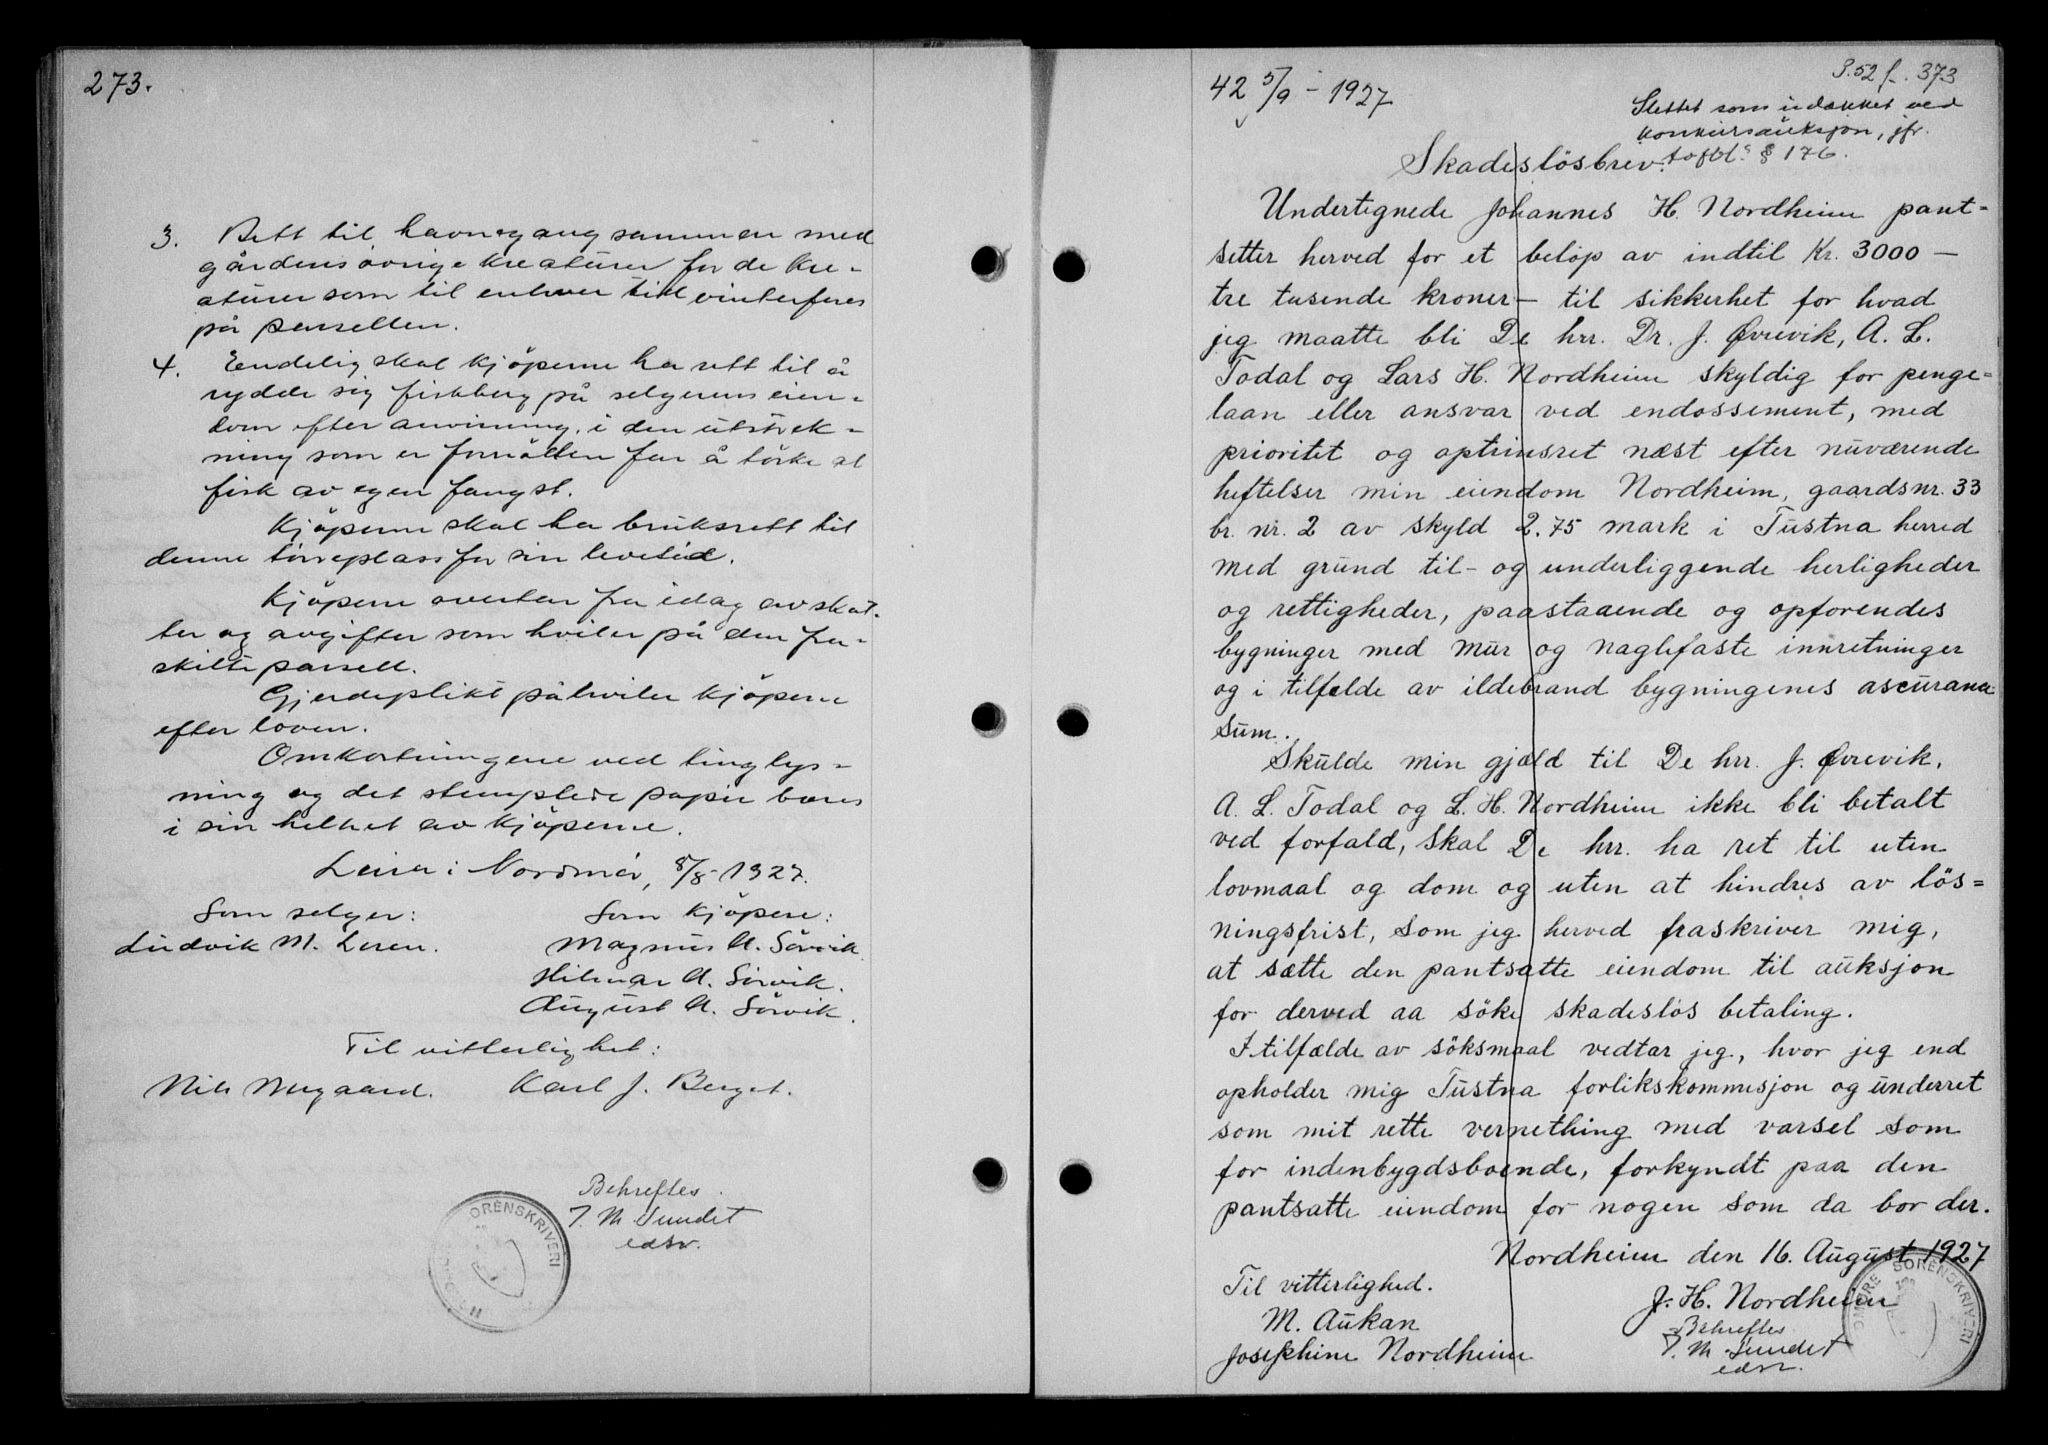 273.
3. Rett til havnegang sammen med
gårdens övrige kreaturer for de kre-
aturer som til enhver tid vinterfores
på parsellen.
4. Eendelig skal kjöperne ha rett til å
rydde sig fiskberg på selgerens eien-
dom efter anvisning, i den utstrek-
ning som er fornöden for å törke al
fisk av egen fangst.
Kjöperne skal ha bruksrett til
denne törreplass for sin levetid.
Kjöperne overtar fra idag av skat-
ter og avgifter som hviler på den fra-
skilte parsell.
Gjerdeplikt påhviler kjöperne
efter loven.
Omkostningene ved tinglys-
ning og det stemplede papir bæres
i sin helhet av kjöperne.
Leira i Nordmör, 8/8-1927.
Som selger: Som kjöpere:
Ludvik M. Leren. Magnus A. Sörvik.
Hilmar A. Sörvik.
August A. Sörvik.
Til vitterlighet:
Nils Nergaard. Karl J. Berget.
Behreftes
T. M. Sundet
edsv.
SORENSKRIVERI
42 5/9 - 1927
P. 52 f. 373
Slettet som udækket ved
konkursauksjon, jfr.
tvfbl. § 176.
Skadeslösbrev.
Undertegnede Johannes H. Nordheim pant-
setter herved for et belöp av indtil Kr. 3000 —
tre tusende kroner — til sikkerhet for hvad
jeg maatte bli De hrr. Dr. J. Øvrevik, A. L.
Todal og Lars H. Nordheim skyldig for penge-
laan eller ansvar ved endossement, med
prioritet og optrinsret næst efter nuværende
heftelser min eiendom Nordheim, gaardsnr. 33
br. nr. 2 av skyld 2.75 mark i Tustna herred
med grund til- og underliggende herligheder
og rettigheder, paastaaende og opförendes
bygninger med mur og naglefaste innretninger
og i tilfelde av ildebrand bygningenes ascurance
sum.
Skulde min gjæld til De hrr. J. Øvrevik,
A. L. Todal og L. H. Nordheim ikke bli betalt
ved forfald, skal De hrr. ha ret til uten
lovmaal og dom og uten at hindres av lös-
ningsfrist, som jeg herved fraskriver mig,
at sætte den pantsatte eiendom til auksjon
for derved aa söke skadeslös betaling.
I tilfælde av söksmaal vedtar jeg, hvor jeg end
opholder mig Tustna forlikskommisjon og underret
som mit rette vernething med varsel som
for indenbygdsboende, forkyndt paa den
pantsatte eiendom for nogen som da bor der.
Nordheim den 16. August 1927
Til vitterlighed. J. H. Nordheim
M. Aukan Behreftes
Josephine Nordheim T. M. Sundet
edsv.
SORENSKRIVERI